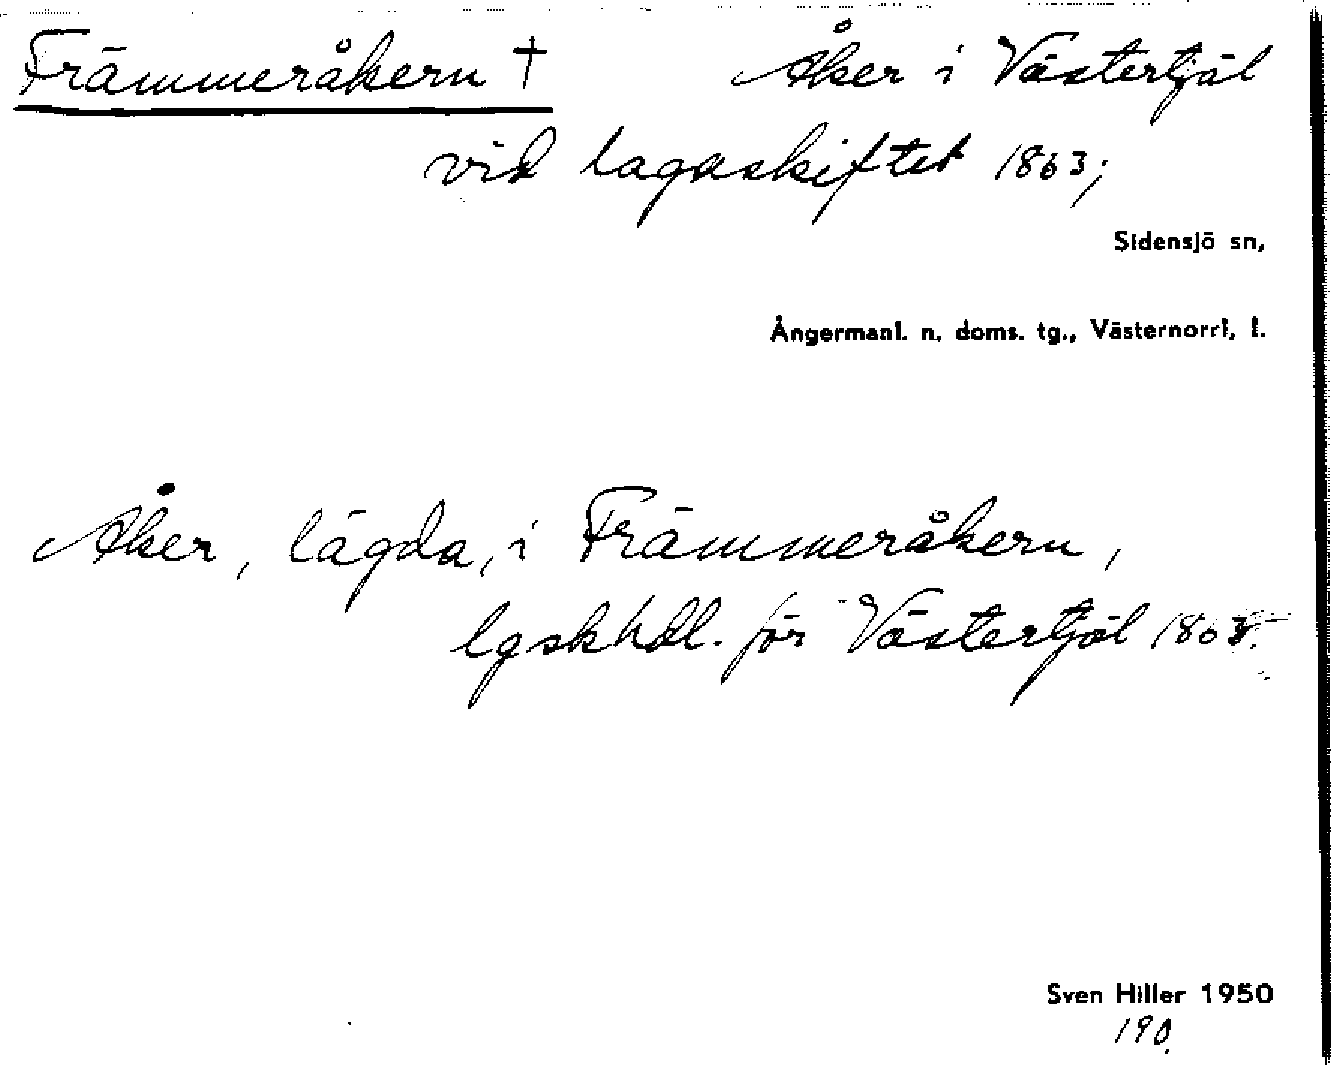 Främmeråkern † Åker i Västertjäl
vid lagaskiftet 1863;
Sidensjö sn,
Ångermanl. n. doms. tg., Västernorrl. l.
Åker, lägda, i Främmeråkern,
lgskhdl. för Västertjäl 1863.
Sven Hiller 1950
190.